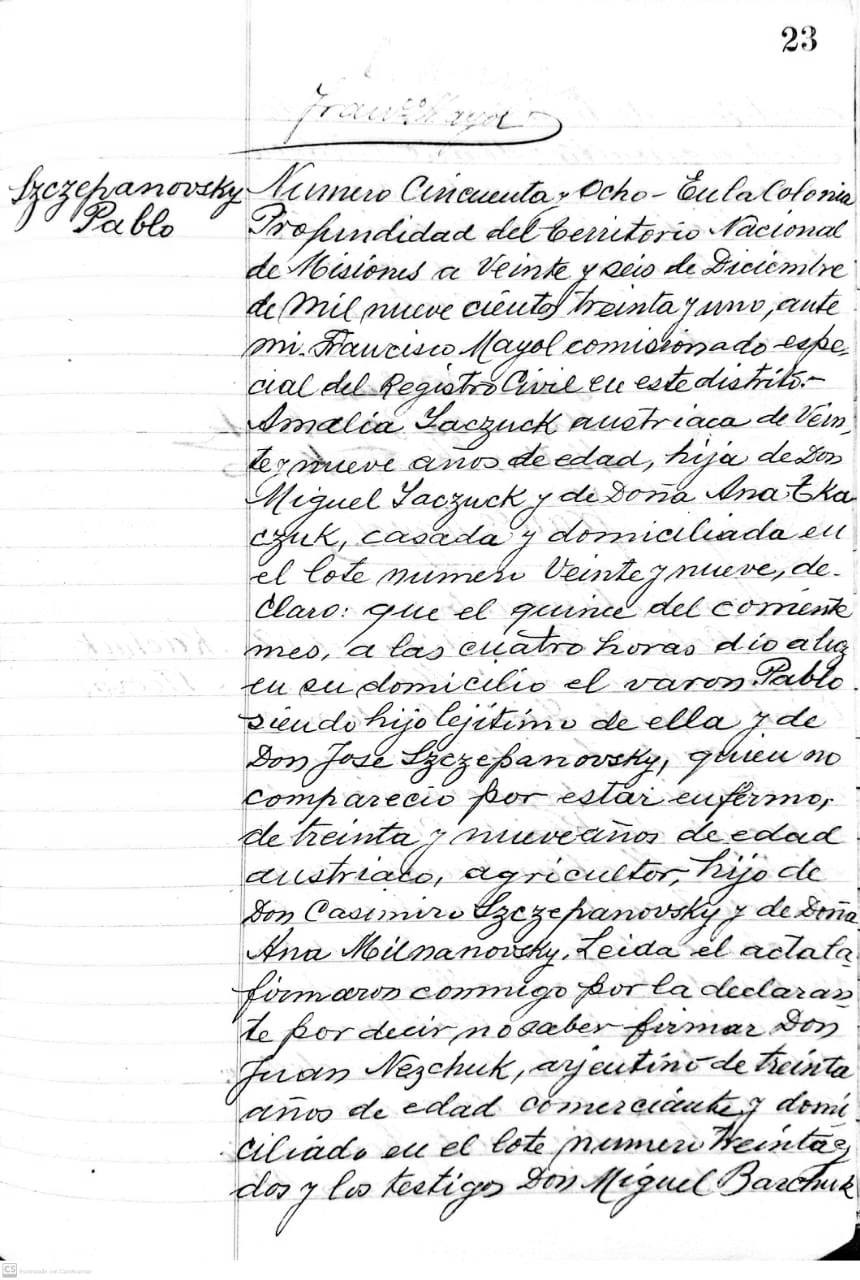 23
Franco Mayol
Szczepanovsky
Pablo
Numero Cincuenta y Ocho - En la Colonia
Profundidad del Territorio Nacional
de Misiones a Veinte y seis de Diciembre
de Mil nueve cientos treinta y uno, ante
mi. Francisco Mayol comisionado espe-
cial del Registro Civil en este distrito.-
Amalia Laczuck austriaca de Vein-
te y nueve años de edad, hija de Don
Miguel Laczuck y de Doña Ana Tka
czuk, casada y domiciliada en
el lote numero Veinte y nueve, de-
claro: que el quince del corriente
mes, a las cuatro horas dio a luz
en su domicilio el varon Pablo
siendo hijo lejitimo de ella y de
Don Jose Szczepanovsky, quien no
comparecio por estar enfermo,
de treinta y nueve años de edad
austriaco, agricultor, hijo de
Don Casimiro Szczepanovsky y de Doña
Ana Milnanovsky. Leida el acta la
firmaron conmigo por la declaran-
te por decir no saber firmar Don
Juan Nezchuk, arjentino de treinta
años de edad comerciante y domi
ciliado en el lote numero treinta y
dos y los testigos Don Miguel Barchuk
CS